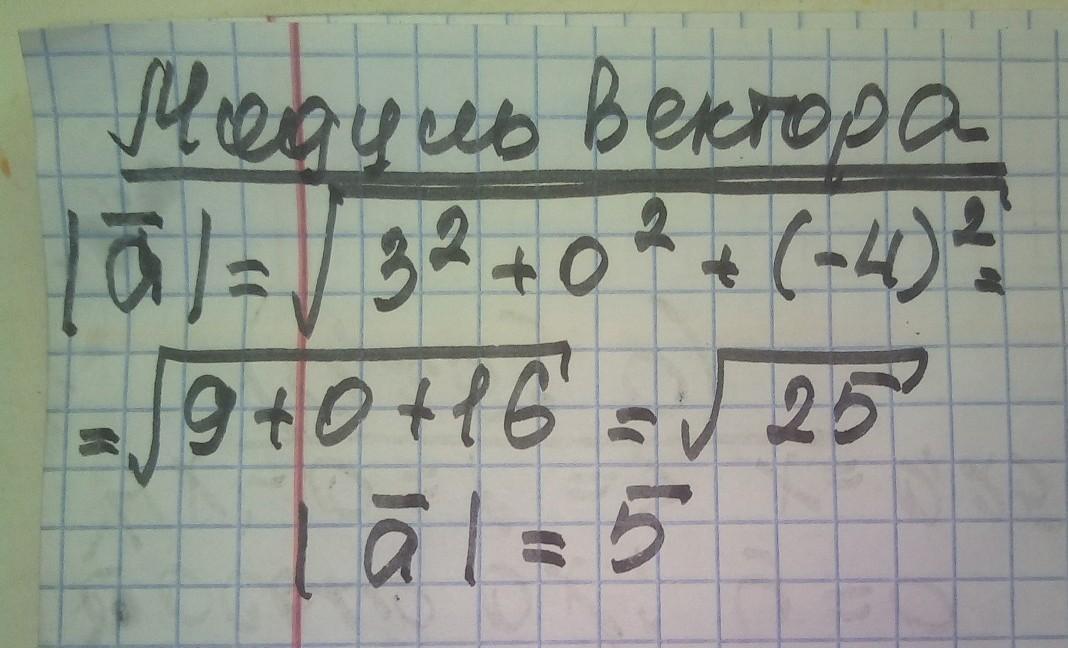 Модуль вектора
|a̅| = √3² + 0² + (-4)² =
= √9+0+16 = √25
|a̅| = 5